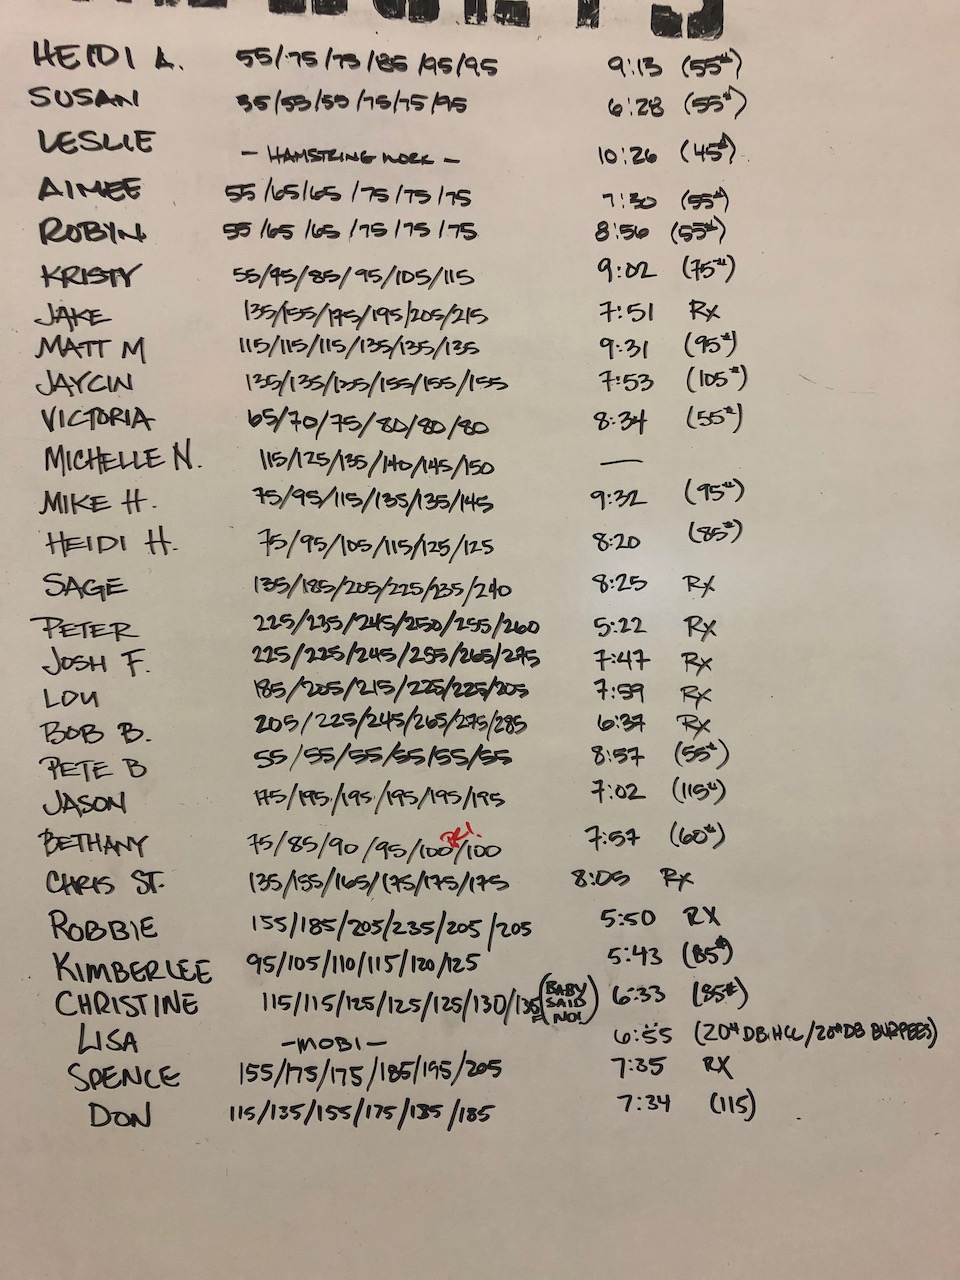 HEIDI A. 55/75/75/85/95/95 9:13 (55#)
SUSAN 35/55/55/75/75/95 6:28 (55#)
LESLIE - HAMSTRING WORK - 10:26 (45#)
AIMEE 55/65/65/75/75/75 7:30 (55#)
ROBYN 55/65/65/75/75/75 8:56 (55#)
KRISTY 55/75/85/95/105/115 9:02 (75#)
JAKE 135/155/175/195/205/215 7:51 Rx
MATT M 115/115/115/135/135/135 9:31 (95#)
JAYCIN 135/135/135/155/155/155 7:53 (105#)
VICTORIA 65/70/75/80/80/80 8:34 (55#)
MICHELLE N. 115/125/135/140/145/150 —
MIKE H. 75/95/115/135/135/145 9:32 (95#)
HEIDI H. 75/95/105/115/125/125 8:20 (85#)
SAGE 135/185/205/225/235/240 8:25 Rx
PETER 225/235/245/250/255/260 5:22 Rx
JOSH F. 225/225/245/255/265/275 7:47 Rx
LOU 185/205/215/225/225/205 7:59 Rx
BOB B. 205/225/245/265/275/285 6:37 Rx
PETE B 55/55/55/55/55/55 8:57 (55#)
JASON 175/195/195/195/195/195 7:02 (115#)
BETHANY 75/85/90/95/100 PR!/100 7:57 (60#)
CHRIS ST. 135/155/165/175/175/175 8:05 Rx
ROBBIE 155/185/205/235/205/205 5:50 RX
KIMBERLEE 95/105/110/115/120/125 5:43 (85#)
CHRISTINE 115/115/125/125/125/130/135F (BABY SAID NO!) 6:33 (85#)
LISA -MOBI- 6:55 (20# DB HCL/20# DB BURPEES)
SPENCE 155/175/175/185/195/205 7:35 RX
DON 115/135/155/175/185/185 7:34 (115)